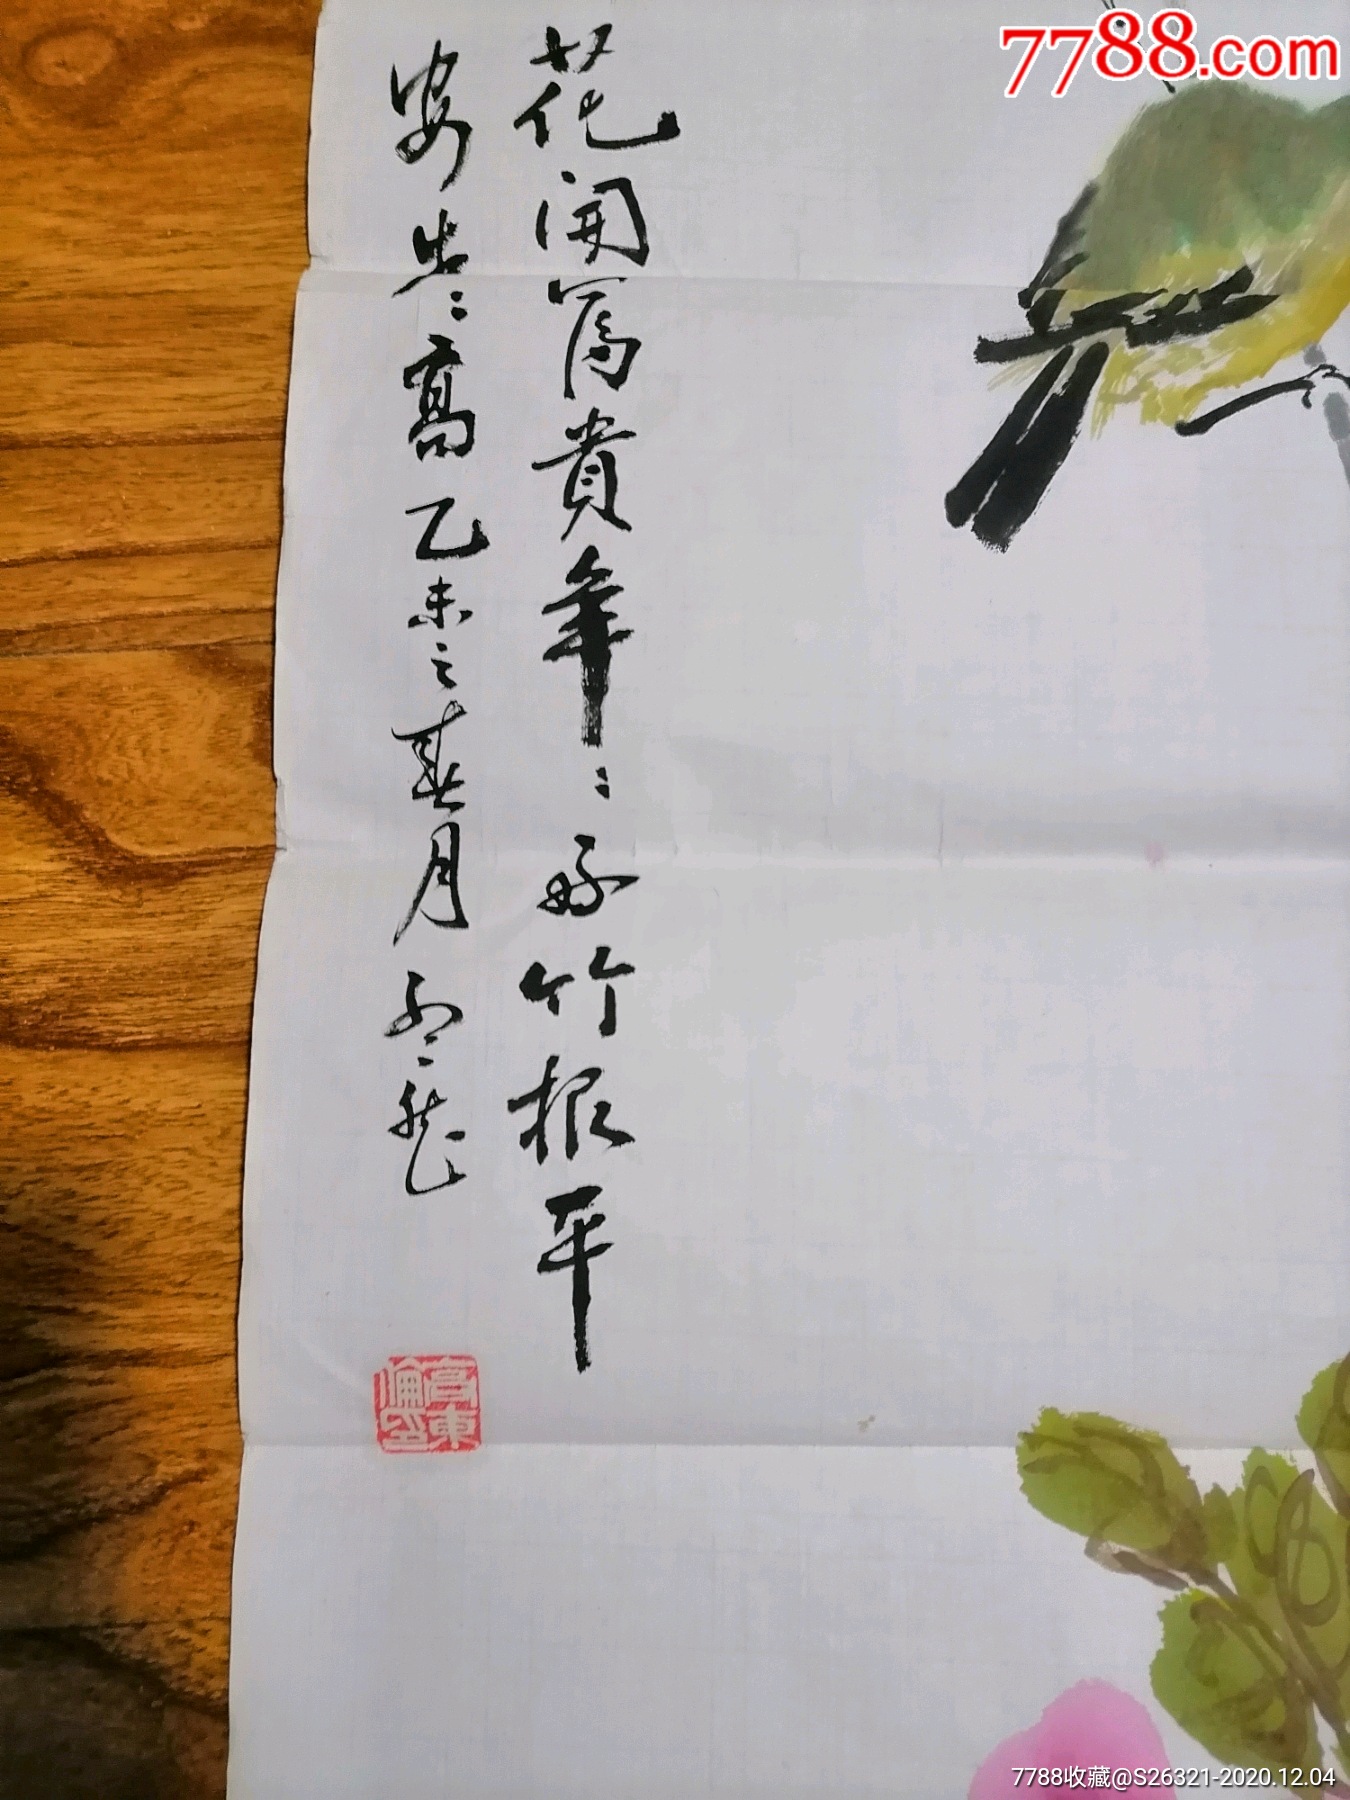 7788.com
花開富貴年々好竹报平
安步々高乙未之春月
東倫印
7788收藏@S26321-2020.12.04